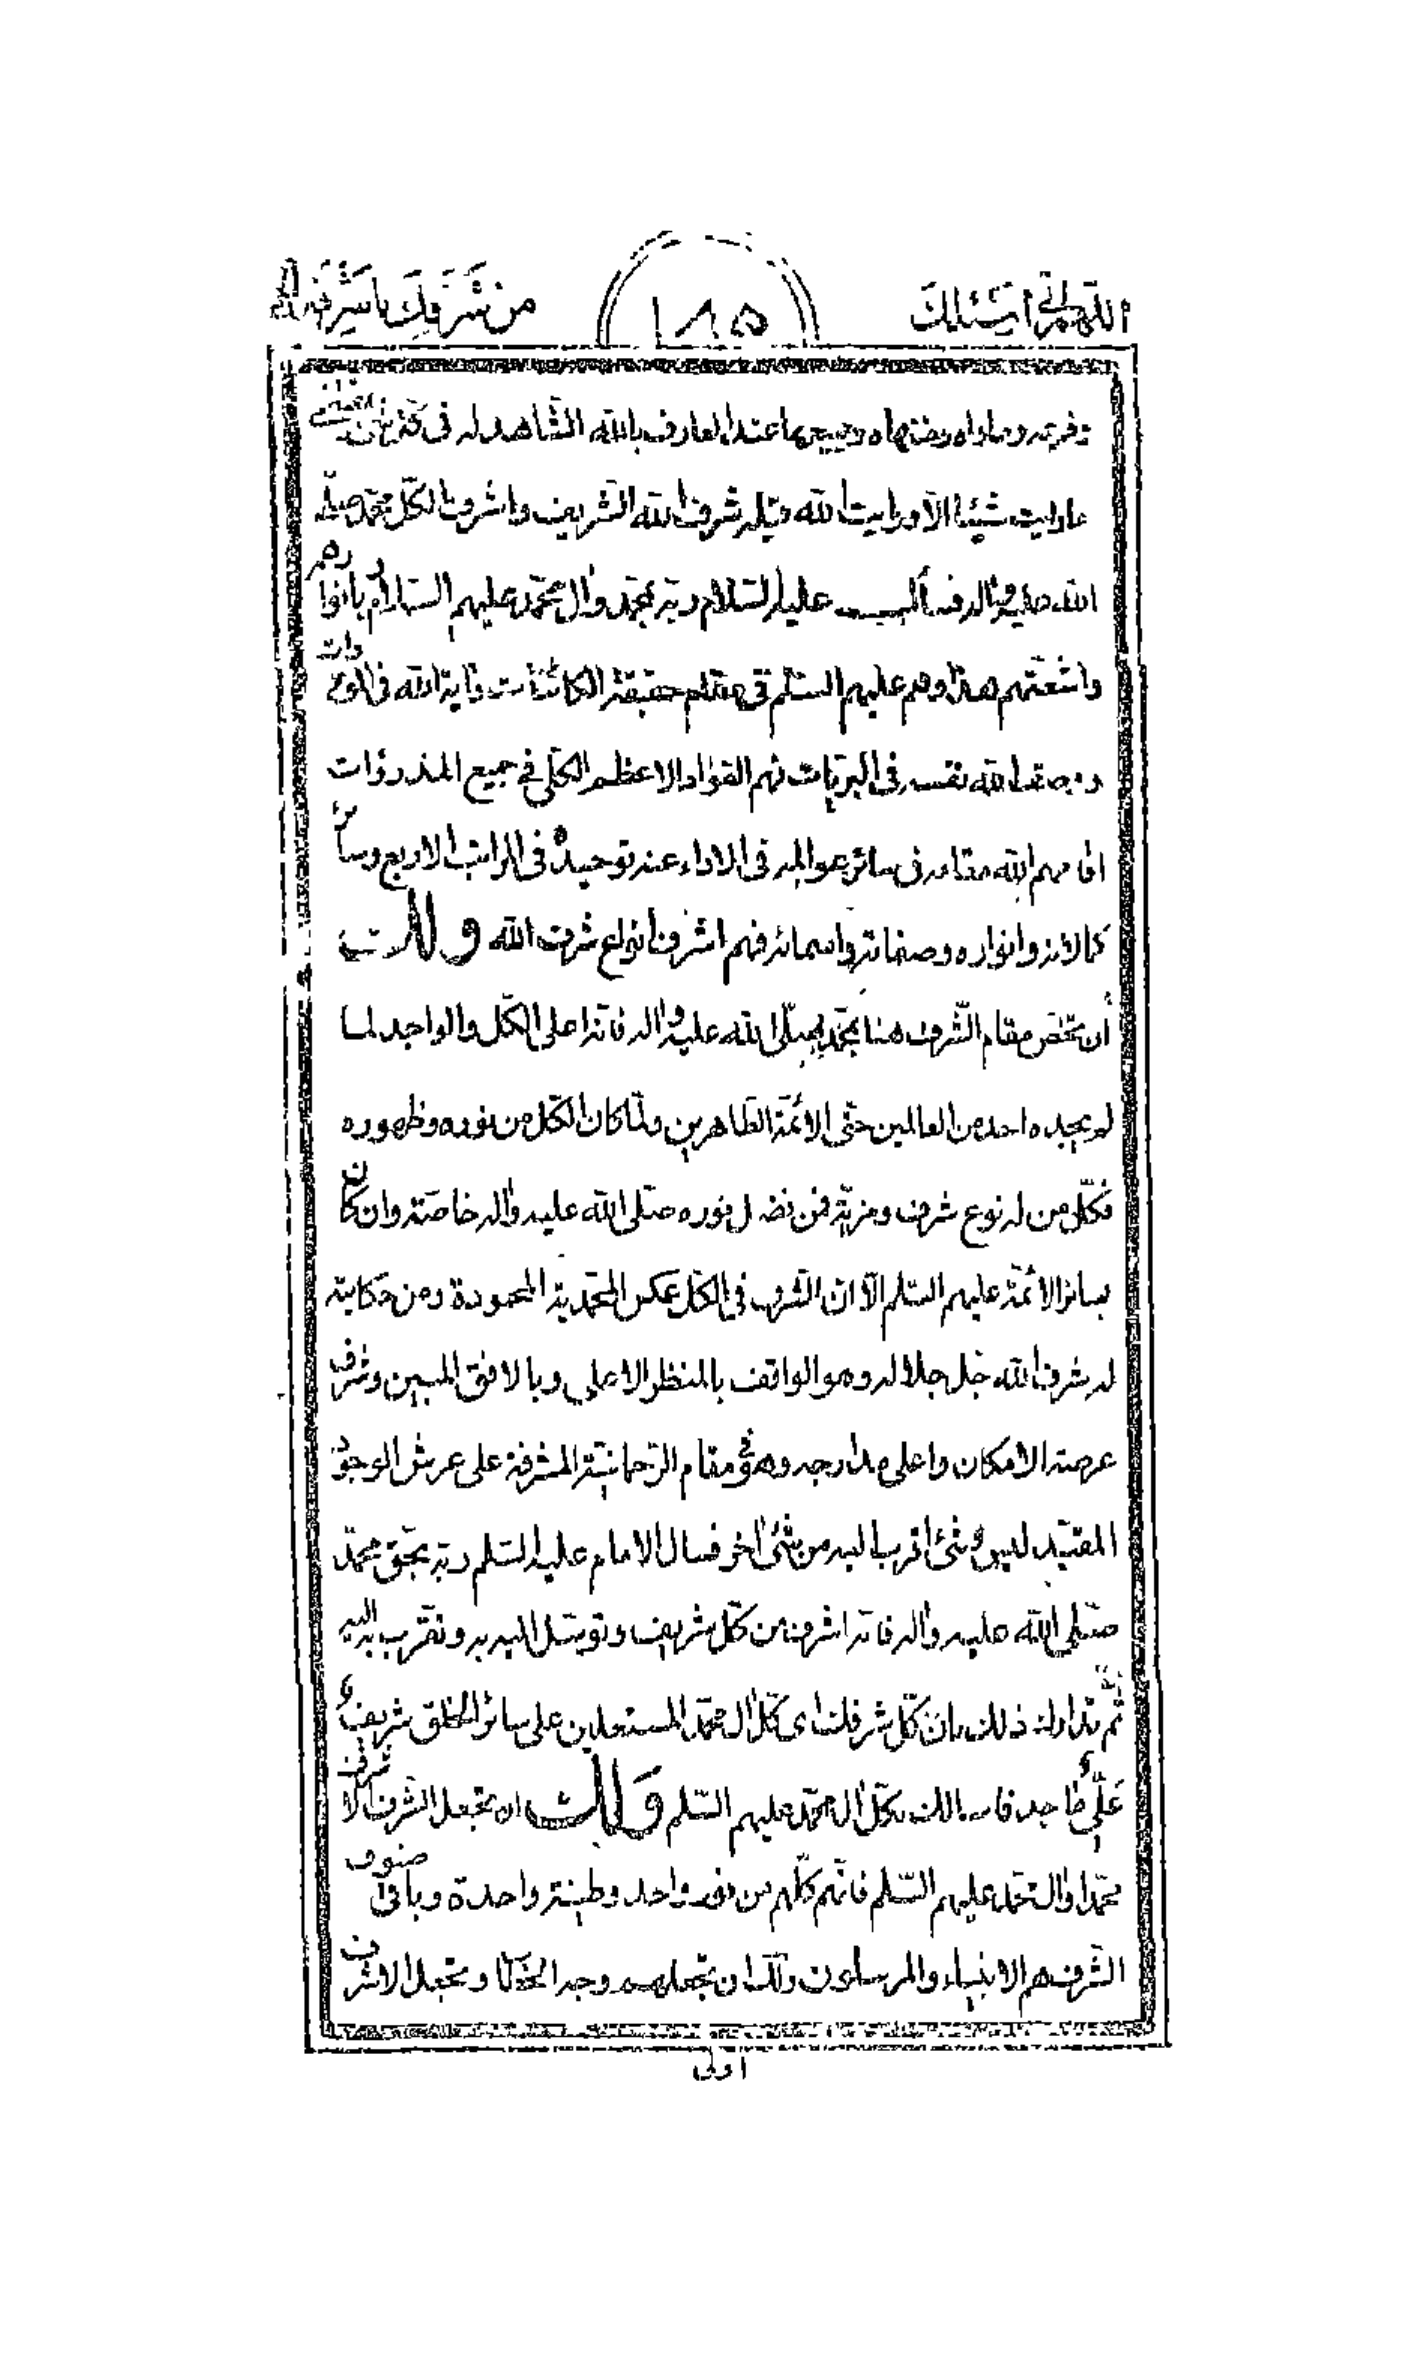 اللّهم إنّى أسئلك ١٨٥ من شرفك باشرفه
وفرعه وماواه ومنتهاه وجميعها عند العارف بالله الشّاهد له فى
ما رايت شيئا الّا ورايت الله قبله شرف الله الشّريف واشرف الكلّ محمّد صلّى
الله عليه واله عليه السّلام ربّه بمحمّد وال محمّد عليهم السّلام بانوارهم
واشعّتهم هذا وهم عليهم السّلم فى مقام حقيقة الكائنات واية الله فى
الله نفسه فى البريّات فهم الفؤاد الاعظم الكلّى فى جميع المذروات
اقامهم الله مقامه فى سائر عوالمه فى الاداء عند توحيده فى المراتب الاربع وسائر
كمالاته وانواره وصفاته واسمائه فهم اشرف انواع شرف الله ولك
أن تخصّ مقام الشّرف هنا بمحمّد صلّى الله عليه واله فانّه اعلى الكلّ والواجد لما
لم يجده احد من العالمين حتّى الائمّة الطّاهرين ولمّا كان الكلّ من نوره وظهوره
فكلّ من له نوع شرف ومزيّة فمن فضل نوره صلّى الله عليه واله خاصّة وان كان
سائر الائمّة عليهم السّلم الّا انّ الشّرف فى الكلّ عكس المحمّديّة المحمودة ومن حكايته
له شرف الله جلّ جلاله وهو الواقف بالمنظر الاعلى وبالافق المبين وشرف
عرصة الامكان واعلى مدارجه وهو فى مقام الرّحمانيّة المشرفة على عرش الوجود
المقيّد ليس شئ اقرب اليه من شئ اخر فسال الامام عليه السّلم ربّه بحقّ محمّد
صلّى الله عليه واله فانّه اشرف من كلّ شريف وتوسّل اليه به وتقرّب به اليه
ثمّ تدارك ذلك بانّ كلّ شرفك اى كلّ ال محمّد المستعلين على سائر الخلق شريف
فاسالك بكلّ ال محمّد عليهم السّلم ولك ان تجعل الشّرف
محمّدا وال محمّد عليهم السّلم فانّهم كلّهم من نور واحد وطينة واحدة وباقى صنوف
الشّرف هم الانبياء والمرسلون ولك ان تجعلهم وتجعل الاشرف
اولى